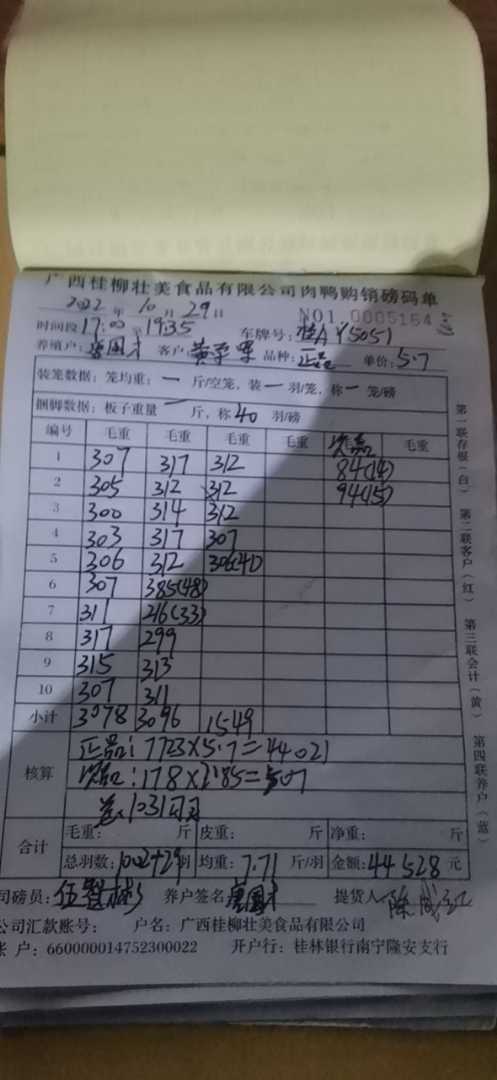 广西桂柳壮美食品有限公司肉鸭购销磅码单
2022年10月29日 NO1.0005154
时间段17:00-19:35 车牌号:桂AY5051
养殖户: 客户: 品种:正品 单价:5.7
装笼数据:笼均重:一斤/空笼,装一羽/笼,称一笼/磅
捆脚数据:板子重量一斤,称40羽/磅
编号 毛重 毛重 毛重 毛重 次品 毛重
1 307 317 312 84(14)
2 305 312 312 94(15)
3 300 314 312
4 303 317 307
5 306 312 306(41)
6 307 385(48)
7 311 216(33)
8 317 299
9 315 313
10 307 311
小计 3078 3096 1549
核算
正品:7723×5.7=44021
次品:178×2.85=507
1031羽
合计
毛重: 斤 皮重: 斤 净重: 斤
总羽数:1002+29羽 均重:7.71斤/羽 金额:44528元
司磅员: 养户签名: 提货人
公司汇款账号: 户名:广西桂柳壮美食品有限公司
账 户:660000014752300022 开户行:桂林银行南宁隆安支行
第一联存根(白) 第二联客户(红) 第三联会计(黄) 第四联养户(蓝)